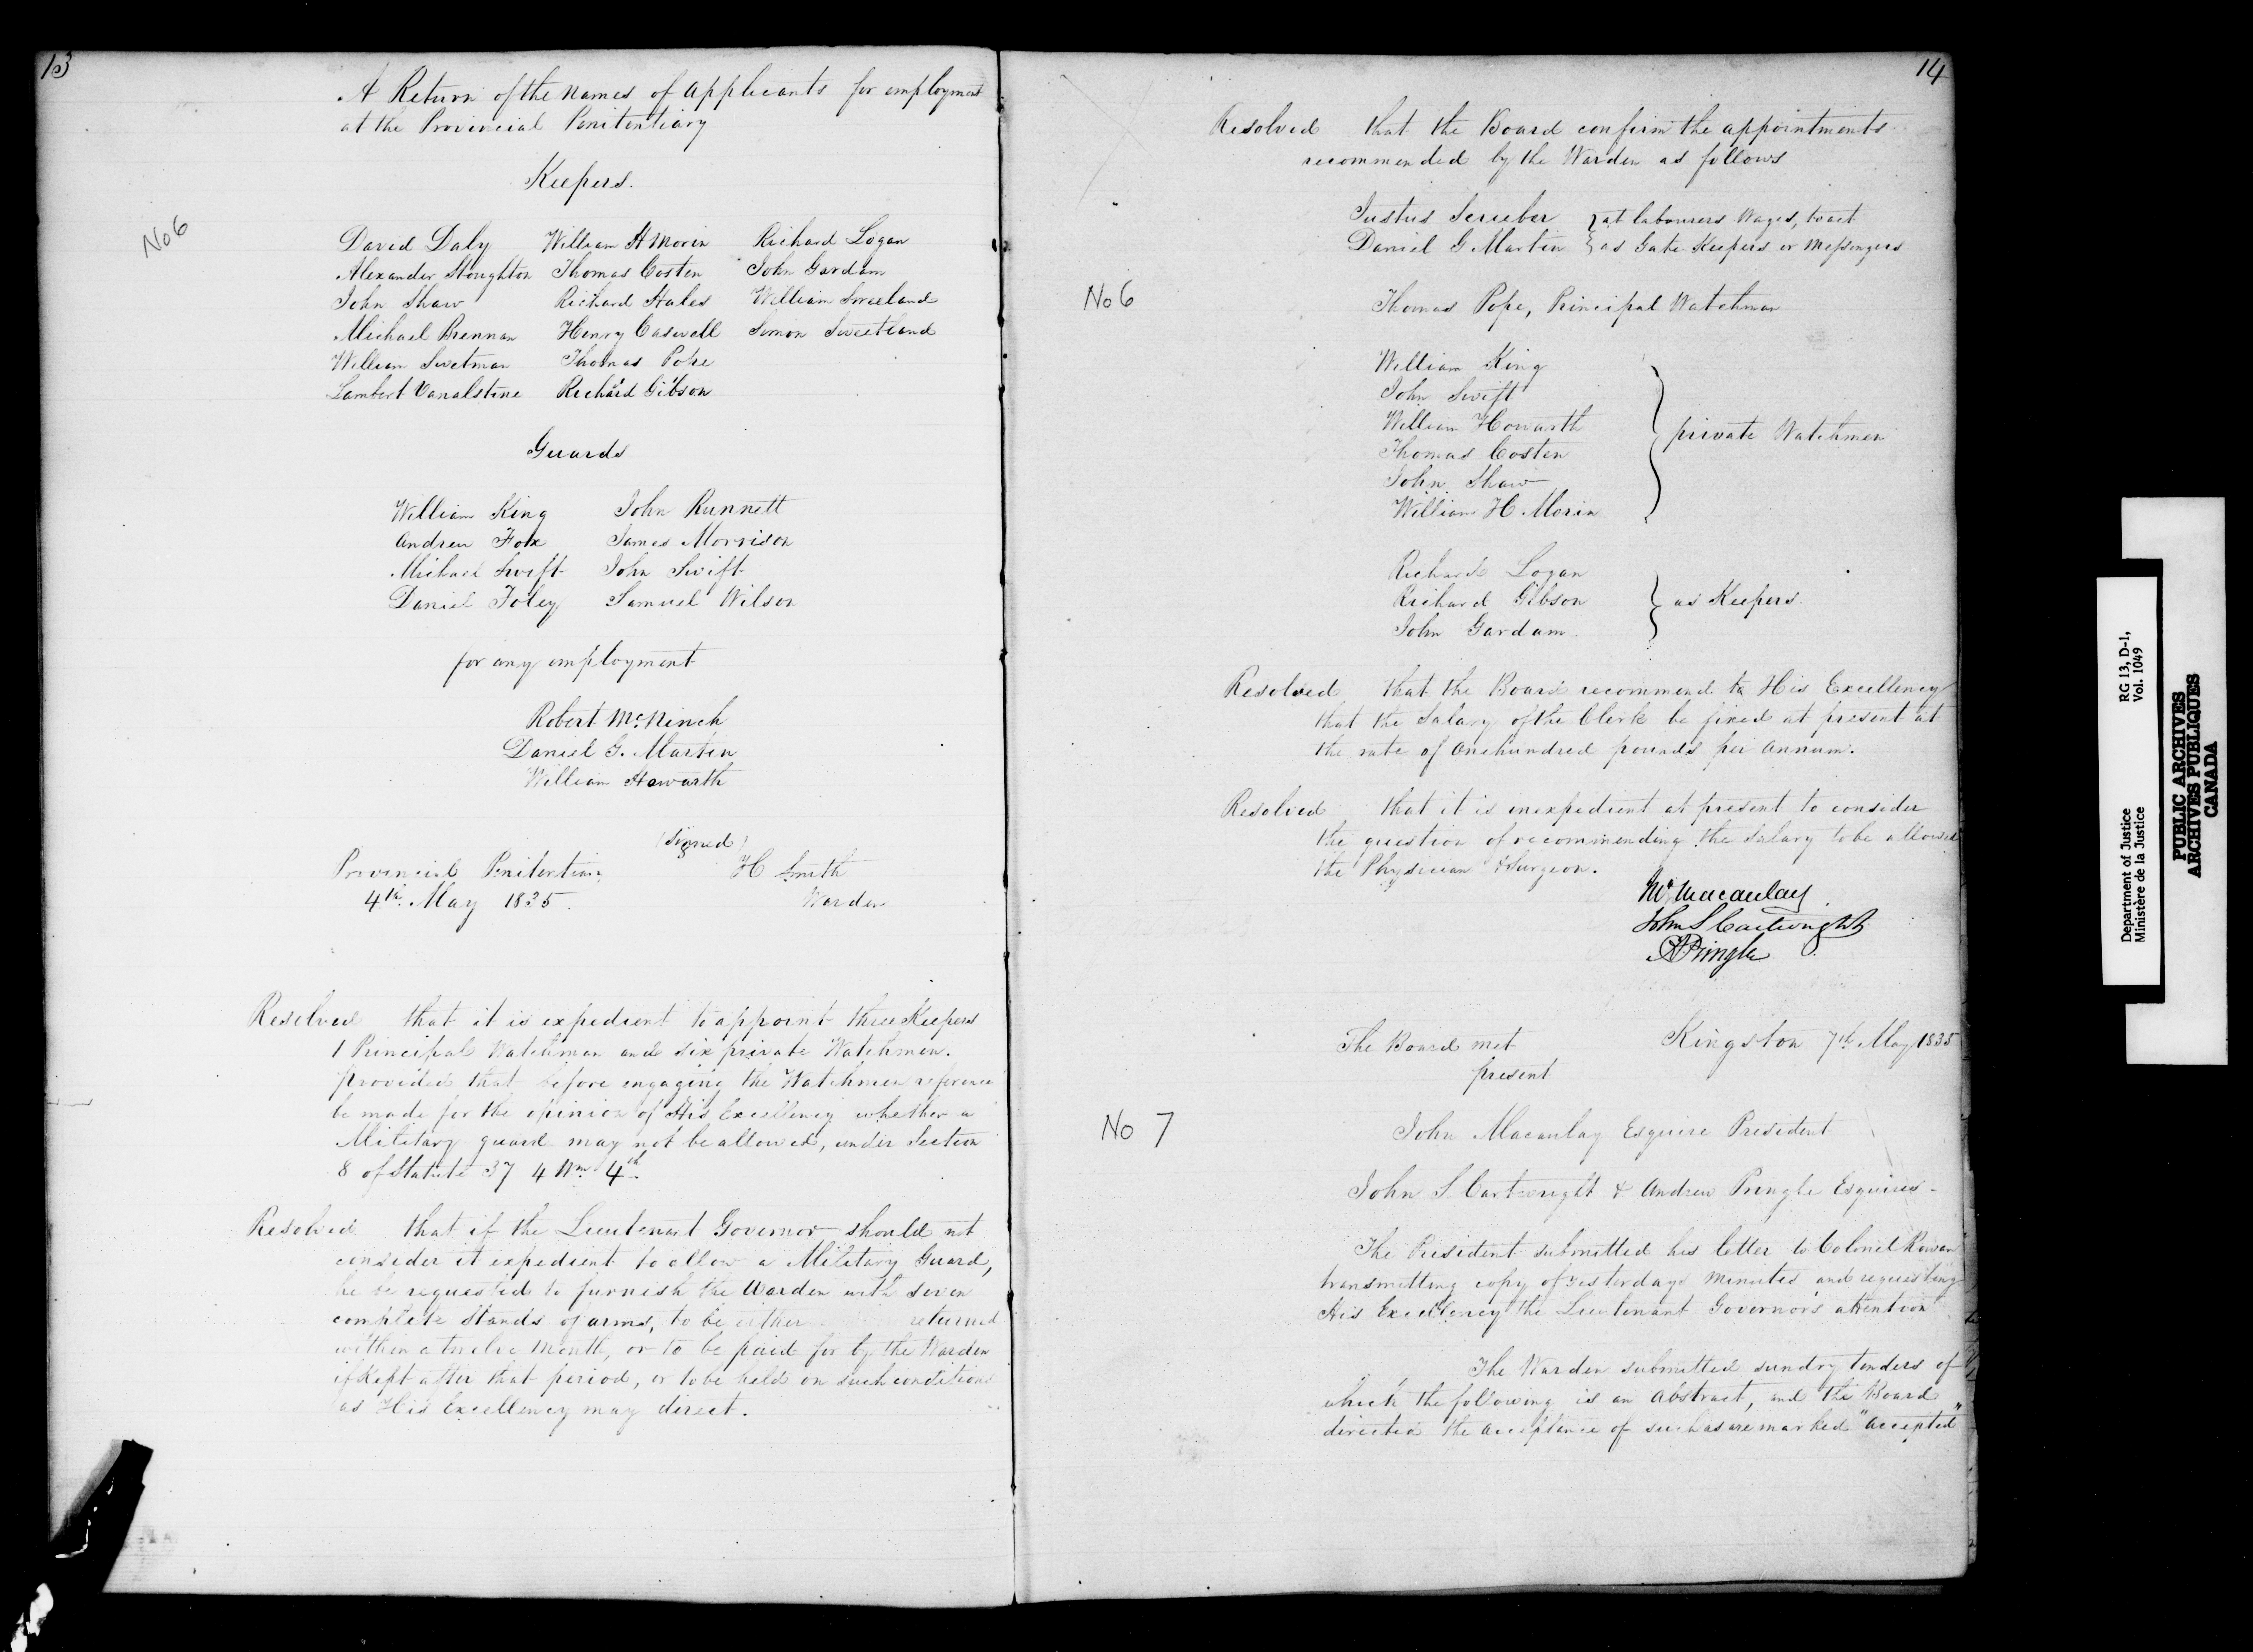 13
A Return of the Names of applicants for employment
at the Provincial Penitentiary
Keepers.
No 6
David Daly William H Morin Richard Logan
Alexander Stoughton Thomas Costen John Gardam
John Shaw Richard Hales William Sweeland
Michael Brennan Henry Caswell Simon Sweetland
William Swetman Thomas Pope
Lambert Vanalstine Richard Gibson
Guards
William King John Runnett
Andrew Fox James Morrison
Michael Swift John Swift
Daniel Foley Samuel Wilson
for any employment
Robert McNinch
Daniel G. Martin
William Howarth
(Signed)
Provincial Penitentiary H Smith
4th May 1835. Warden
Resolved that it is expedient to appoint three Keepers
1 Principal Watchman and six private Watchmen.
provided that before engaging the Watchmen reference
be made for the opinion of His Excellency whether a
Military guard may not be allowed, under Section
8 of Statute 37 4 Wm 4th
Resolved that if the Lieutenant Governor should not
consider it expedient to allow a Military Guard,
he be requested to furnish the Warden with seven
complete Stands of arms, to be either returned
within a twelve Month, or to be paid for by the Warden
if Kept after that period, or to be held on such conditions
as His Excellency may direct.
14
Resolved that the Board confirm the appointments
recommended by the Warden as follows
Justus at labourers Wages, to act
Daniel G Martin as Gate Keepers or Messengers
No 6
Thomas Pope, Principal Watchman
William King
John Swift
William Howarth
private Watchmen
Thomas Costen
John Shaw
William H. Morin
Richard Logan
Richard Gibson as Keepers.
John Gardam.
Resolved that the Board recommend to His Excellency
that the Salary of the Clerk be fixed at present at
the rate of One hundred pounds per Annum.
Resolved that it is inexpedient at present to consider
the question of recommending the Salary to be allowed
the Physician & Surgeon.
Macaulay
John S Cartwright
A Pringle
The Board met Kingston 7th May 1835
present
No 7
John Macaulay Esquire President
John S. Cartwright & Andrew Pringle Esquires.
The President submitted his letter to Colonel Rowan
transmitting copy of yesterdays Minutes and requesting
His Excellency the Lieutenant Governor's attention
The Warden submitted sundry tenders of
which the following is an Abstract, and the Board
directed the acceptance of such as are marked "Accepted"
Department of Justice RG 13, D-1,
Ministère de la Justice Vol. 1049
PUBLIC ARCHIVES
ARCHIVES PUBLIQUES
CANADA